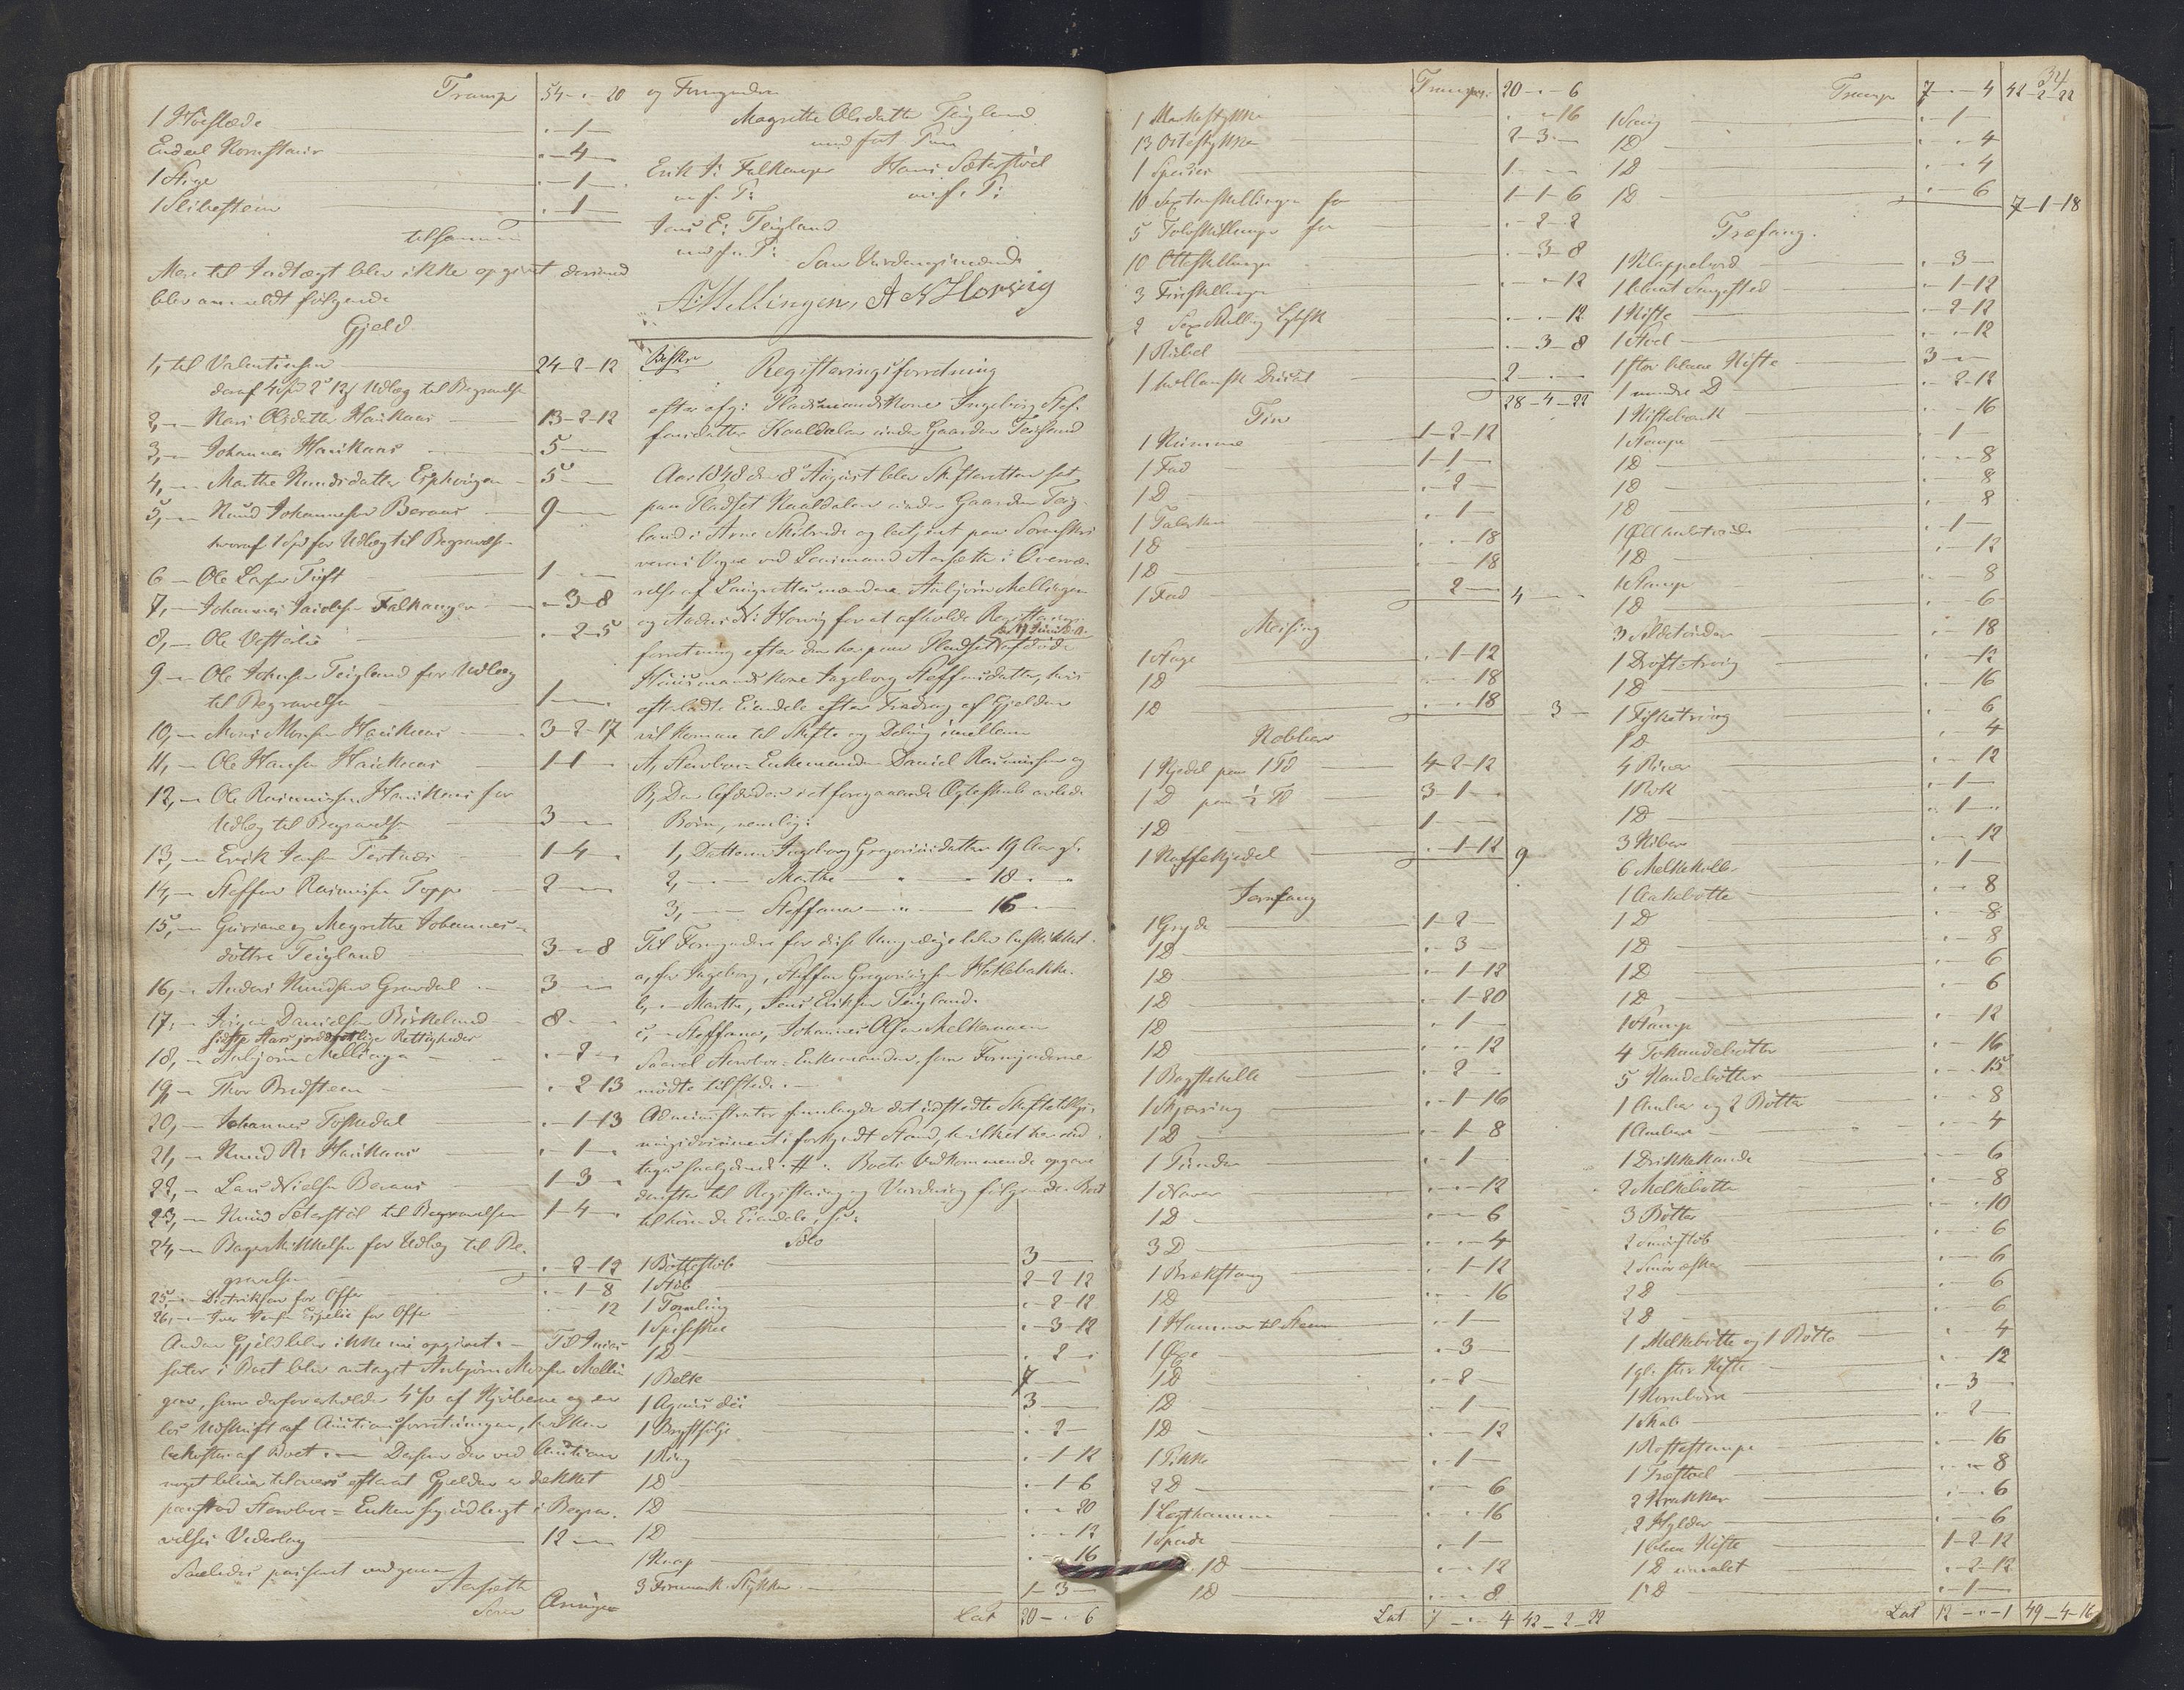 Transp 54-"-20
1 Høeslæde "-1-
Endeel Kornstaur "-4-
1 Stige "-1-
1 Slibesteen "-1-
tilsammen
Mere til Indtægt blev ikke opgivet derimod
blev anmeldt følgende
Gjeld
1, til Valentinsen 24-2-12
deraf 4 Spd 2 12 Udlæg til Begravelse
2, - Kari Olsdatter Haukaas 13-2-12
3, - Johannes Haukaas 5-
4, - Marthe Knudsdatter 5-
5, - Knud Johannesen Beraas 9-
hvoraf 1 Spd for Udlæg til Begravelse
6 - Ole Larsen Tuft 1-
7, - Johannes Falkanger "-3-8
8, - Ole "-2-5
9 - Ole Johnsen Teigland for Udlæg
til Begravelse 1-
10, - Mons Monsen Haukaas 3-2-17
11, - Ole Hansen Haukaas 1-1
12, - Ole Rasmussen Haukaas for
Udlæg til Begravelse 3-
13, - Erik Jensen Tertnæs 1-4-
14, - Steffen Rasmussen Toppe 2-
15, - og Magrethe Johannes-
døttre Teigland 3-"-8
16, - Anders Knudsen Gravdal 3-
17, - Danielsen Birkeland 8-
sidste Aars jorddrotlige Rettigheder
18, - Anbjørn Mellingen "-2-
19, - Thor Bredsteen "-2-13
20, - Johannes "-1-13
21, - Knud R: Haukaas "-1-
22, - Lars Nielsen Beraas 1-3-
23, - Knud Sæterstøl til Begravelsen 1-4-
24, - Mikkelsen for Udlæg til Be-
gravelse "-2-12
25, - Didriksen for Offer "-1-8
26, - Iver Jensen for Offer 12
Anden Gjeld blev ikke nu opgivet. - Til Incas-
sator i Boet blev antaget Anbjørn Monsen Mellin-
gen, som derfor erholder 4 % af Kjøberne og en
løs Udskrift af Auctionsforretningen, hvilken
bekostes af Boet. - Dersom der ved Auctionen
noget bliver tilovers efterat Gjelden er dækket
paastod Stervboe-Enken sig udlagt i Begra-
velses Vederlag 12-
Saaledes passeret vidgaaer
Aarsæth
Som Arvinger
og Formyndere
Magrethe Olsdatter Teigland
med ført Pen
Erik J: Falkanger Hans Sæterstøl
m. f. P: m. f. P:
Jens E: Teigland
med f. P: Som Vurderingsmænd
A: Mellingen, A N Horvig
Beskr
Registeringsforretning
efter afg: Pladsmandskone Ingeborg Stef-
fensdatter Kaaldalen under Gaarden Teigland
Aar 1848 den 8de August blev Skifteretten sat
paa Pladset Kaaldalen under Gaarden Teig-
land i Arne Skibrede og betjent paa Sorenskri-
verens Vegne ved Lensmand Aarsæth i Overvæ-
relse af Laugrettesmændene Anbjørn Mellingen
og Anders N: Horvig for at afholde Registerings-
forretning efter den her paa Pladset den 17 Juni d. A. afdøde
Huusmandskone Ingeborg Steffensdatter, hvis
efterladte Eiendele efter Fradrag af Gjelden
vil komme til Skifte og Deling imellem
A, Stervboe-Enkemanden Daniel Rasmussen og
B, Den Afdødes i et foregaaende Ægteskab avlede
Børn, nemlig:
1, Datteren Ingeborg Gregoriusdatter 19 Aar gl.
2, - Marthe - " - 18 - "
3, - Steffana - " - 16
Til Formyndere for disse Umyndige blev beskikket
a, for Ingeborg, Steffen Gregoriussen
b, - Marthe, Jens Eriksen Teigland.
c, - Steffana, Johannes Olsen Melkeraaen
Saavel Stervboe-Enkemanden, som Formynderne
mødte tilstede. -
Administrator fremlagde det udstedte Skiftetilsyns
i forkyndt Stand, hvilket her ind-
tages saalydende # : Boets Vedkommende opgave
derefter til Registering og Vurdering følgende Boet
tilhørende Eiendele, so:
Sølv
1 Bøttestøb 3-
1 Støb 2-2-12
1 Tomling "-2-12
1 Spiseskee "-3-12
1 D "-2-
1 Belte 7-
1 Agnus dei 3-
1 Brystsølje "-2-
1 Ring "-1-12
1 D "-1-6
1 D "-"-20
1 D "-"-12
1 Knap "-"-16
3 Firemark Stykker 1-3-
Lat 20-"-6
Transp: 20-"-6
1 Markestykke "-"-16
13 Ortestykker 2-3-
1 Species 1-
10 Sextenskillinger for 1-1-6
5 Tolvskillinger for "-2-2
10 Otteskillinger "-3-8
3 Fireskillinger "-"-12
2 Sex Skilling Lybsk "-"-12
1 Rubel "-3-8
1 hollansk Ducat 2-
28-4-22
Tin
1 Kumme 1-2-12
1 Fad 1-1-
1 D "-2-
1 Talerken "-1-
1 D "-"-18
1 D "-"-18
1 Fad 2- 4-
Messing
1 Stage "-1-12
1 D "-"-18
1 D "-"-18 "-3-
Kobber
1 Kjedel paa 1 Td 4-2-12
1 D paa ½ Td 3-1-
1 D 1-
1 Kaffekjedel "-1-12 9
Jernfang
1 Gryde 1-2-
1 D "-3-
1 D "-1-12
1 D "-1-20
1 D "-1-
1 D "-"-12
1 Bagstehelle "-2-
1 Skjæring "-1-16
1 D "-1-8
1 Pande "-1-
1 Naver "-"-12
1 D "-"-6
3 D "-"-4
1 Brækstang "-1-12
1 D "-"-16
1 Hammer til Steen "-1-
1 Øxe "-3-
1 D "-2-
1 D "-1-
1 D "-"-12
1 Pikke "-1-
2 D "-"-6
1 "-"-16
1 Spade "-1-
1 D "-"-12
1 D "-"-8
Lat 7-"-4 42-2-22
34
Transp 7-"-4 42-2-22
1 "-1-
1 D "-"-4
1 D "-"-4
1 D "-"-6 7-1-18
Træfang.
1 Klappebord "-3-
1 Sengested "-1-12
1 Kiste "-2-12
1 Stoel "-"-12
1 stor blaae Kiste 3-
1 mindre D "-2-12
1 Kistebænk "-"-16
1 Stampe "-1-
1 D "-"-8
1 D "-"-8
1 D "-"-8
1 Øll halvtønde "-1-
1 D "-"-12
1 Stamp "-"-8
1 D "-"-6
3 Sildetønder "-"-18
1 Drøftetroug "-"-12
1 D "-"-16
1 Fisketroug "-"-6
1 D "-"-4
4 River "-"-12
1 Rok "-1-
1 D "-1-
3 Kiber "-"-12
6 Melkekoller "-1-
1 "-"-8
1 D "-"-8
1 D "-"-8
1 D "-"-6
1 D "-"-6
1 Stamp "-"-12
4 Tokandebøtter "-"-16
5 Kandebøtter "-"-15
1 Ambar og 2 Bøtter "-"-8
1 Ambar "-"-4
1 Drikkekande "-"-6
2 Melkebøtter "-"-8
3 Bøtter "-"-10
2 Smørstøb "-"-6
2 Smøræsker "-"-6
2 D "-"-6
2 D "-"-6
1 Melkebøtte og 1 Bøtte "-"-4
1 gl: stor Kiste "-"-12
1 "-3-
1 Skab "-2-
1 Rostestampe "-"-16
1 Træstoel "-"-8
2 Krakker "-"-6
2 Hylder "-"-6
1 blaae Kiste 1-2-12
1 D umalet "-2-12
1 D "-1-
Lat 12-"-1 49-4-16